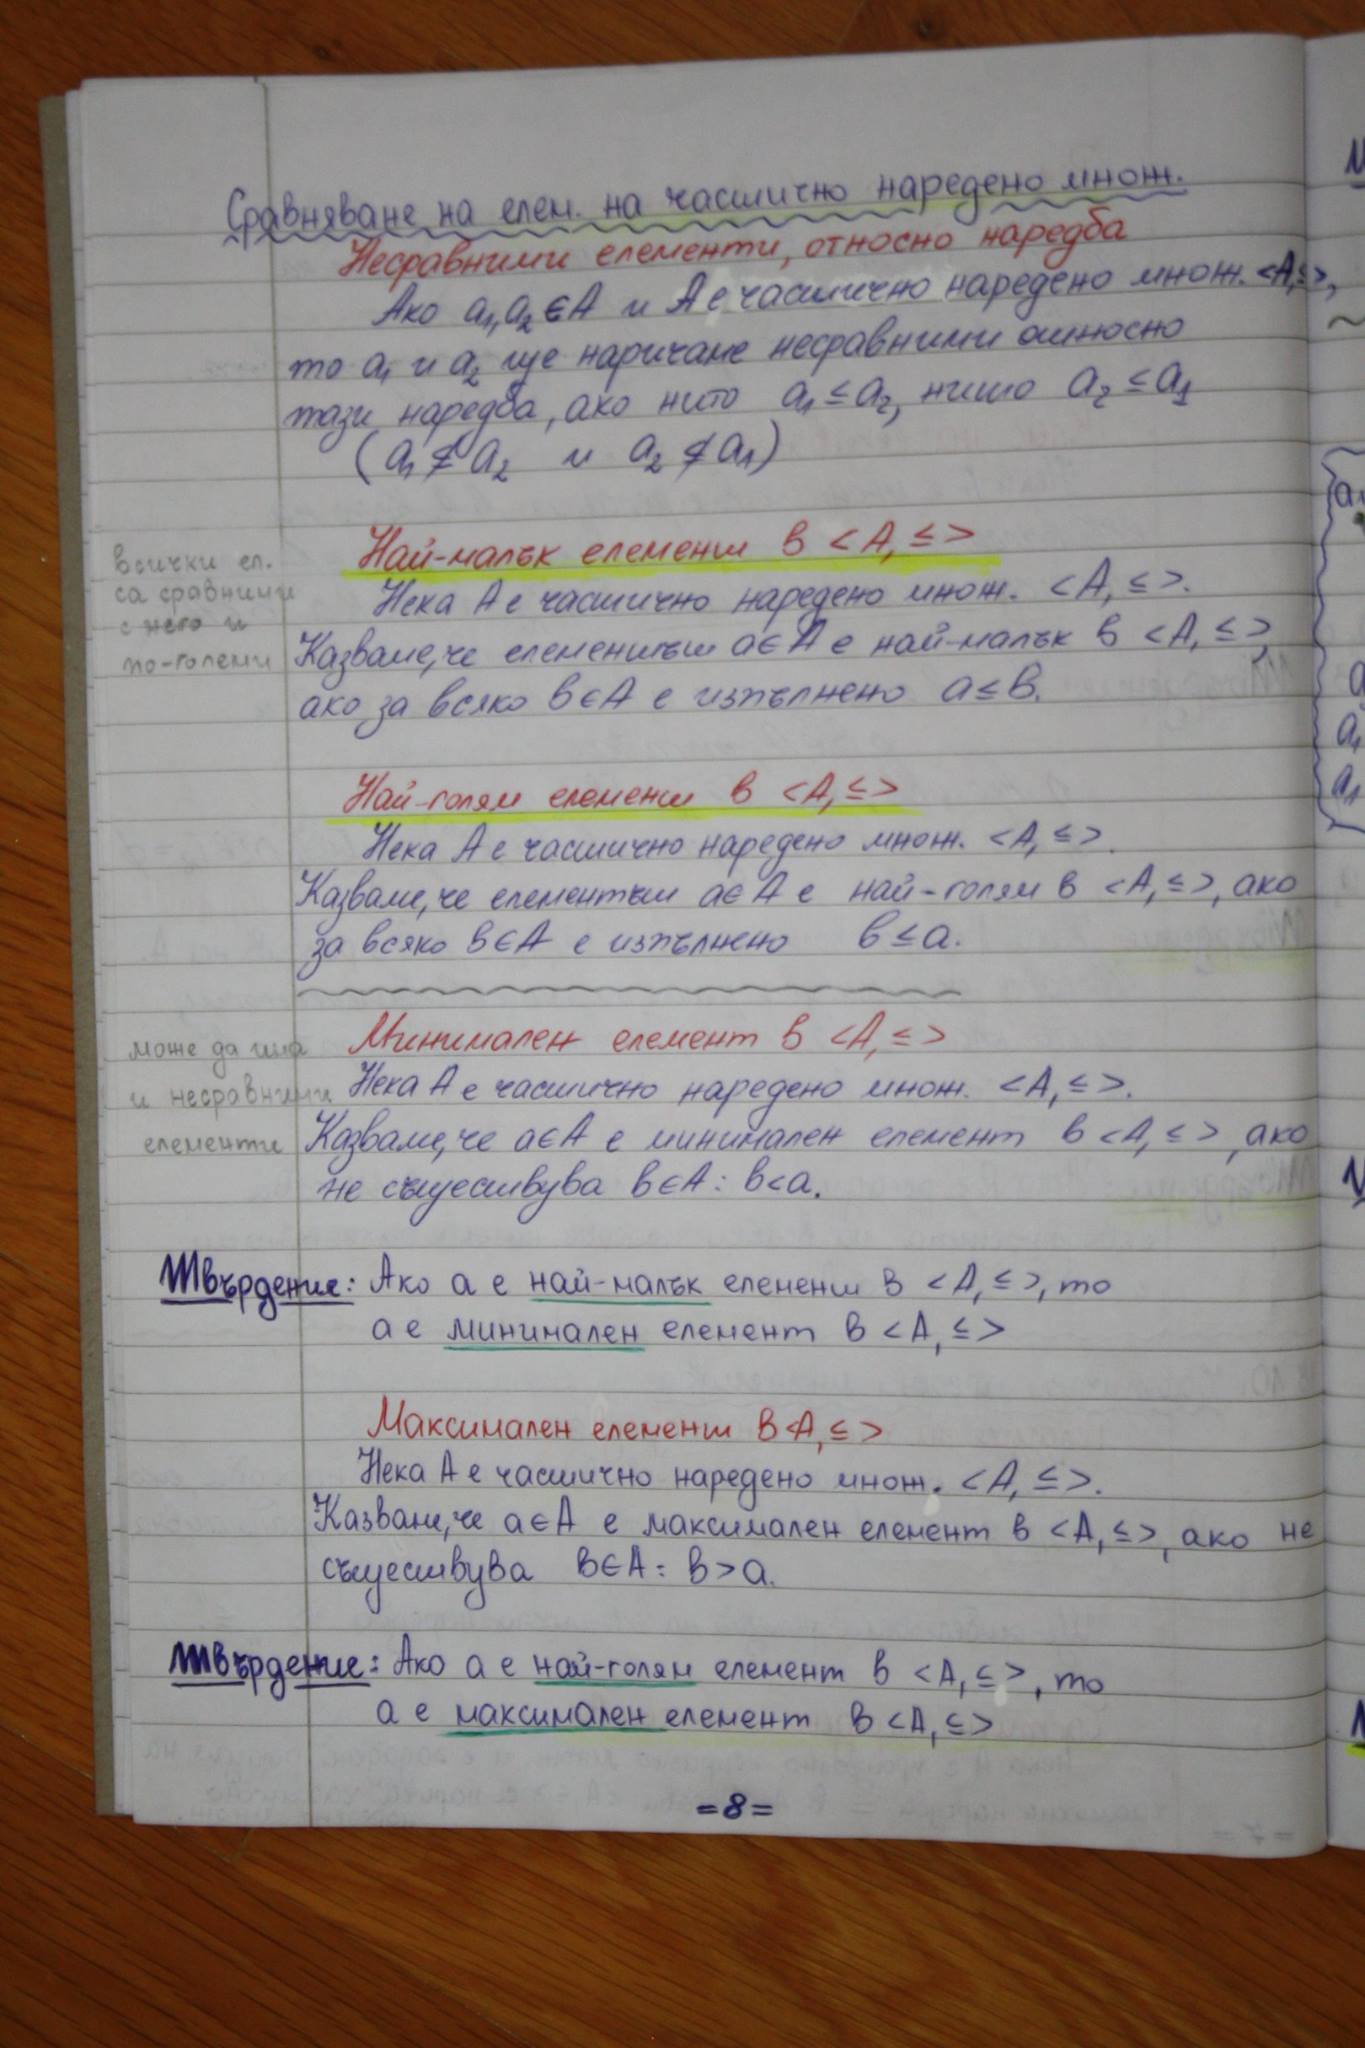 Сравняване на елем. на частично наредено множ.
Несравними елементи, относно наредба
Ако a₁, a₂ ∈ A и A е частично наредено множ. <A, ≤>,
то a₁ и a₂ ще наричаме несравними относно
тази наредба, ако нито a₁ ≤ a₂, нито a₂ ≤ a₁
(a₁ ≰ a₂ и a₂ ≰ a₁)
Най-малък елемент в <A, ≤>
всички ел.
са сравними
с него и
по-големи
Нека A е частично наредено множ. <A, ≤>.
Казваме, че елементът a ∈ A е най-малък в <A, ≤>,
ако за всяко b ∈ A е изпълнено a ≤ b.
Най-голям елемент в <A, ≤>
Нека A е частично наредено множ. <A, ≤>.
Казваме, че елементът a ∈ A е най-голям в <A, ≤>, ако
за всяко b ∈ A е изпълнено b ≤ a.
Минимален елемент в <A, ≤>
може да има
и несравними
елементи
Нека A е частично наредено множ. <A, ≤>.
Казваме, че a ∈ A е минимален елемент в <A, ≤>, ако
не съществува b ∈ A : b < a.
Твърдение: Ако a е най-малък елемент в <A, ≤>, то
a е минимален елемент в <A, ≤>
Максимален елемент в <A, ≤>
Нека A е частично наредено множ. <A, ≤>.
Казваме, че a ∈ A е максимален елемент в <A, ≤>, ако не
съществува b ∈ A : b > a.
Твърдение: Ако a е най-голям елемент в <A, ≤>, то
a е максимален елемент в <A, ≤>
=8=